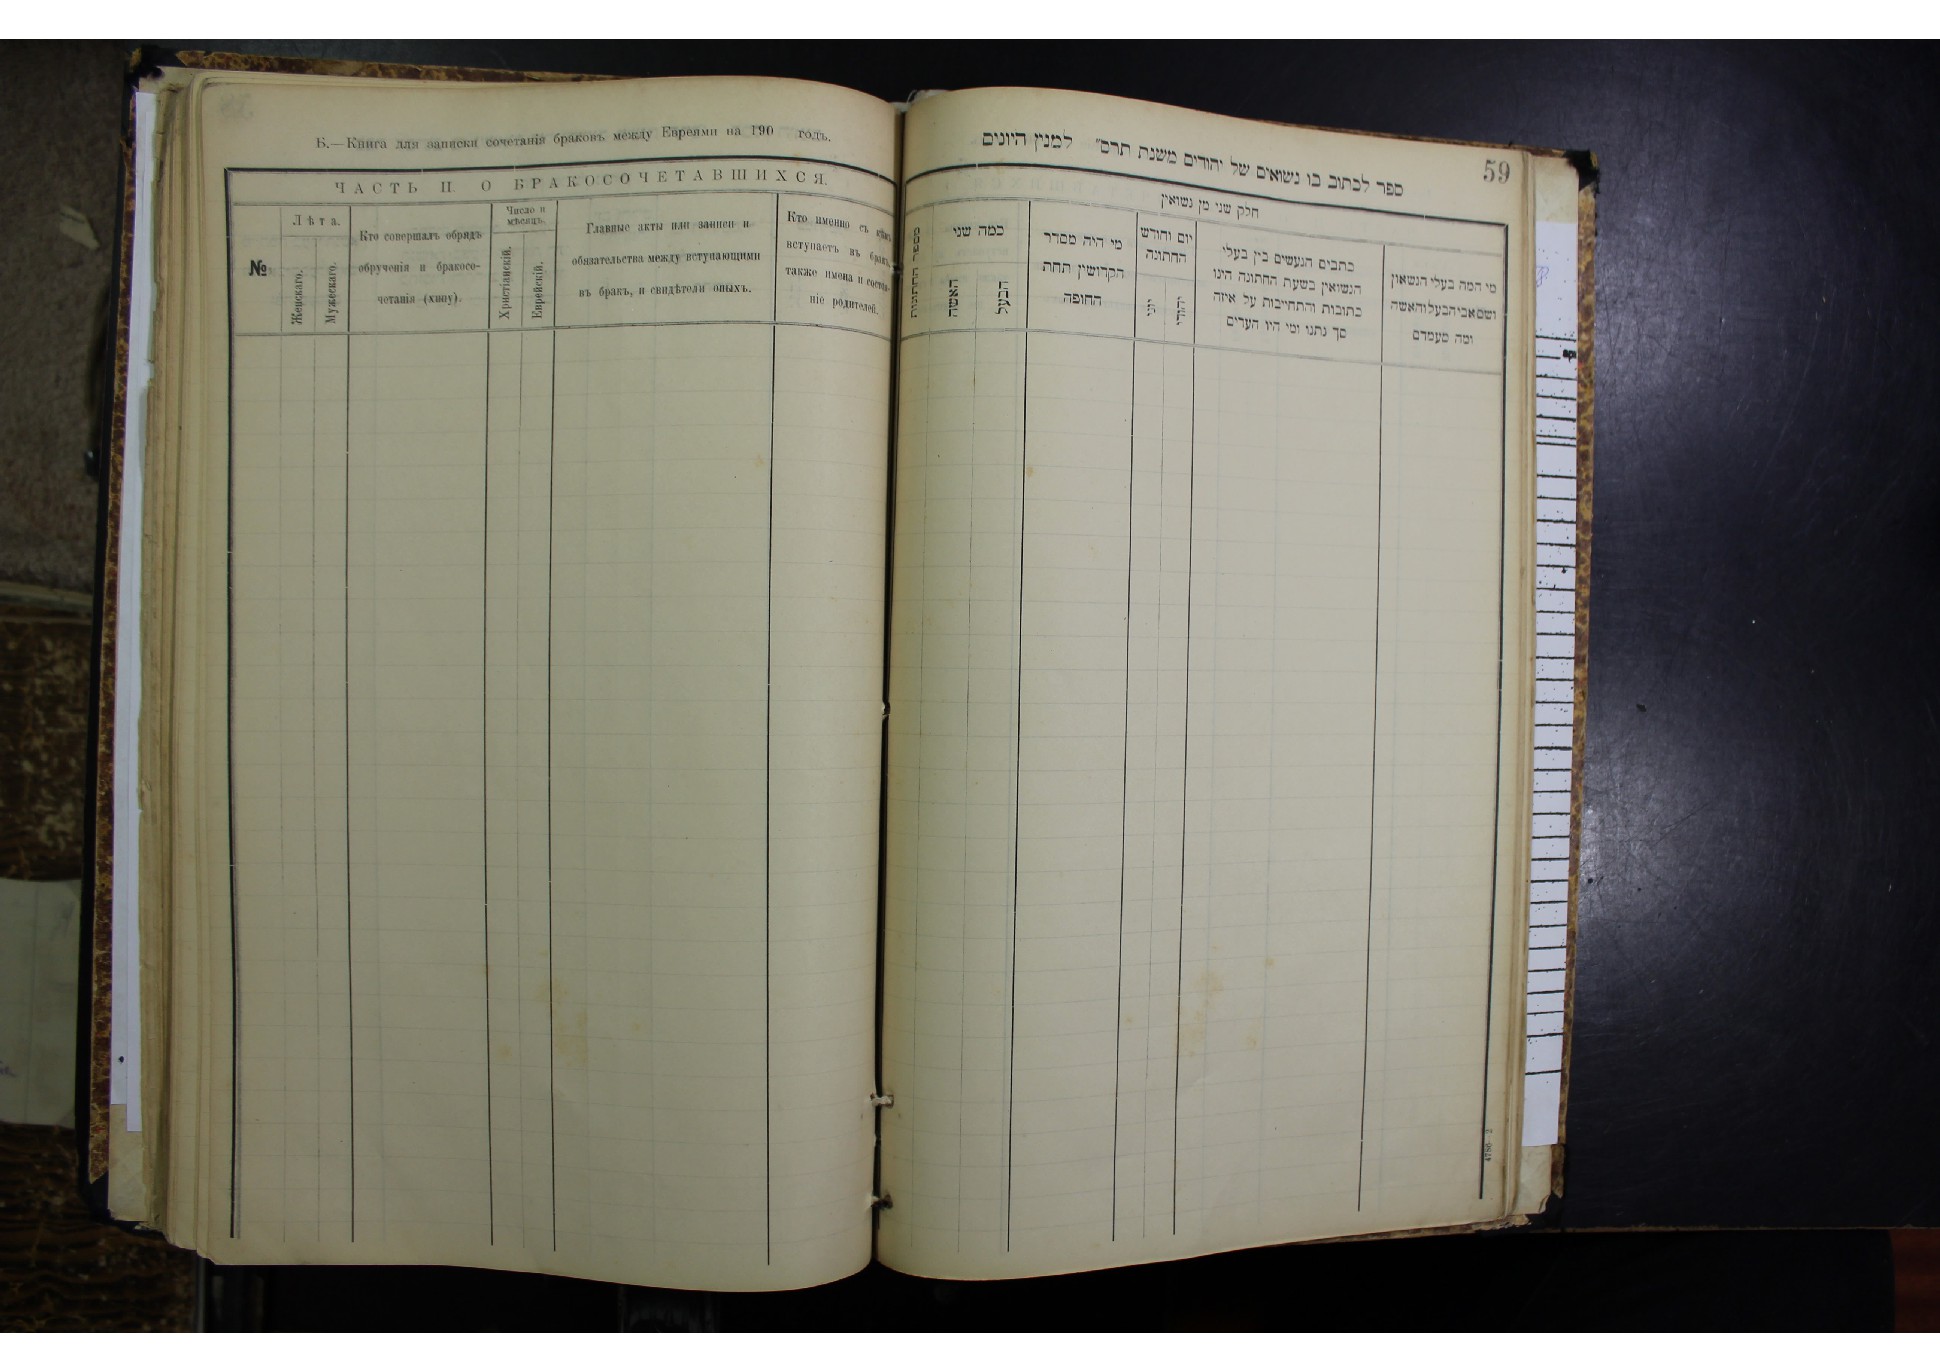 Б.—Книга для записки сочетанія браковъ между Евреями на 190 годъ.
ЧАСТЬ II. О БРАКОСОЧЕТАВШИХСЯ.
№
Лѣта.
Женскаго.
Мужескаго.
Кто совершалъ обрядъ
обрученія и бракосо-
четанія (хупу).
Число и
мѣсяцъ.
Христіанскій.
Еврейскій.
Главные акты или записи и
обязательства между вступающими
въ бракъ, и свидѣтели оныхъ.
Кто именно съ кѣмъ
вступаетъ въ бракъ,
также имена и состоя-
ніе родителей.
59
ספר לכתוב בו נשואים של יהודים משנת תרס״ למנין היונים
חלק שני מן נשואין
מספר החתונות
כמה שני
האשה
הבעל
מי היה מסדר
הקדושין תחת
החופה
יום וחודש
החתונה
יוני
יהודי
כתבים הנעשים בין בעלי
הנשואין בשעת החתונה הינו
כתובות והתחייבות על איזה
סך נתנו ומי היו העדים
מי המה בעלי הנשואין
ושם אביהבעל והאשה
ומה מעמדם
4786—2